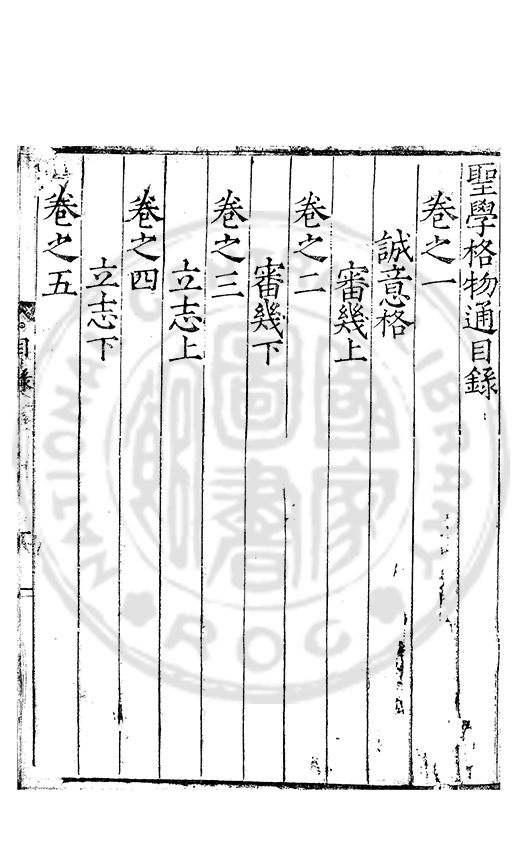 聖學格物通目錄
卷之一
誠意格
審幾上
卷之二
審幾下
卷之三
立志上
卷之四
立志下
卷之五
目錄
國家圖書館
NATIONAL CENTRAL LIBRARY
ROC